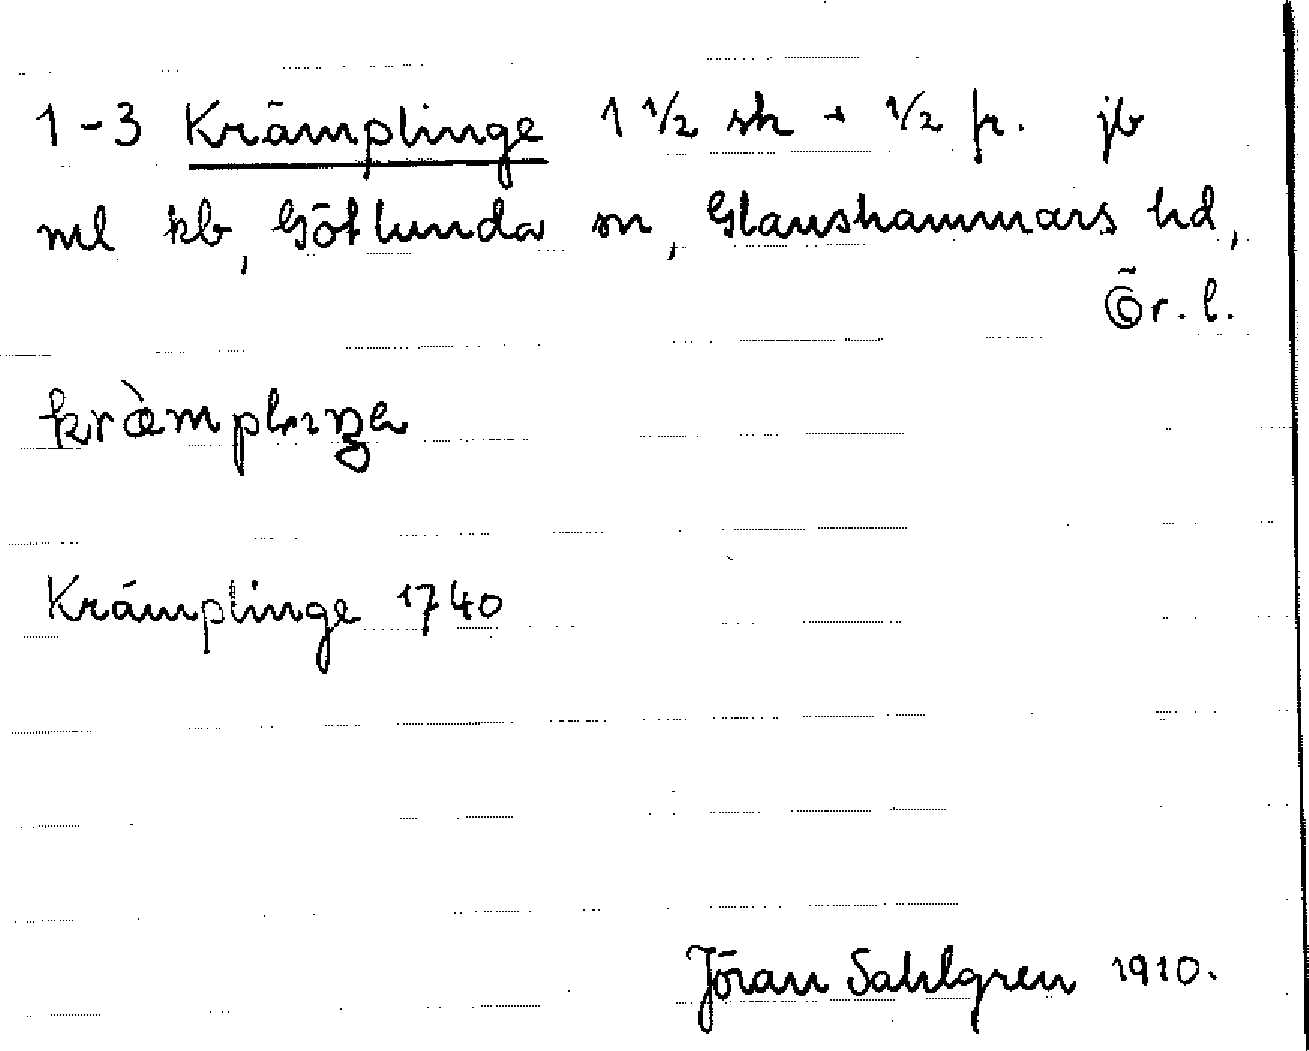 1-3 Krämplinge 1 1/2 sk + 1/2 fr. jb
ml kb, Götlunda sn, Glanshammars hd,
Ör. l.
Krämplinge 1740
Jöran Sahlgren 1910.